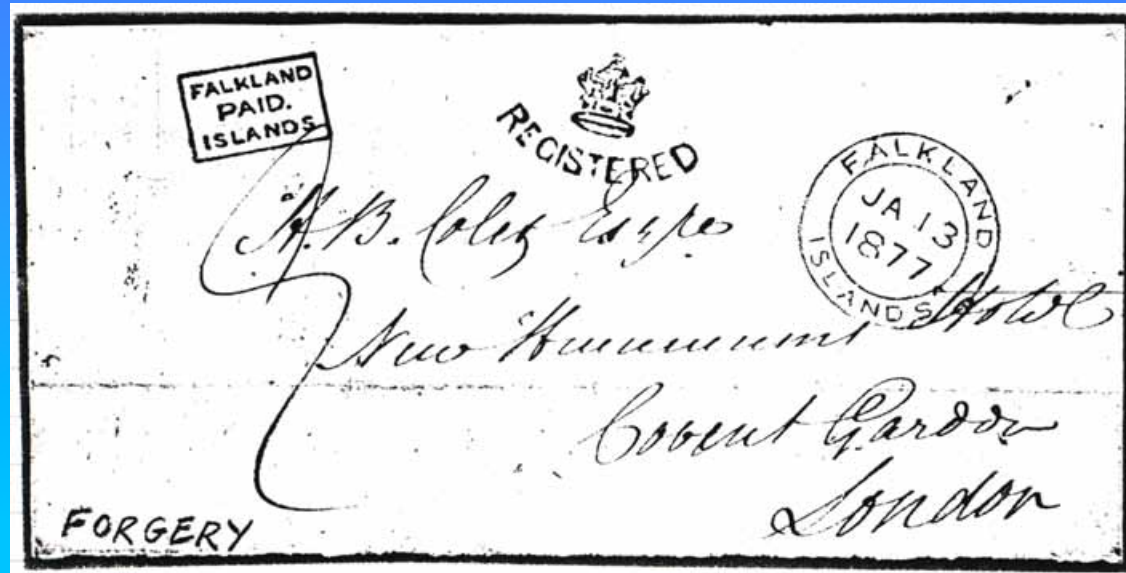 FALKLAND
PAID.
ISLANDS
REGISTERED
FALKLAND
JA 13
1877
ISLANDS
H. B. Esqre
New Hummums Hotel
Covent Garden
London
FORGERY